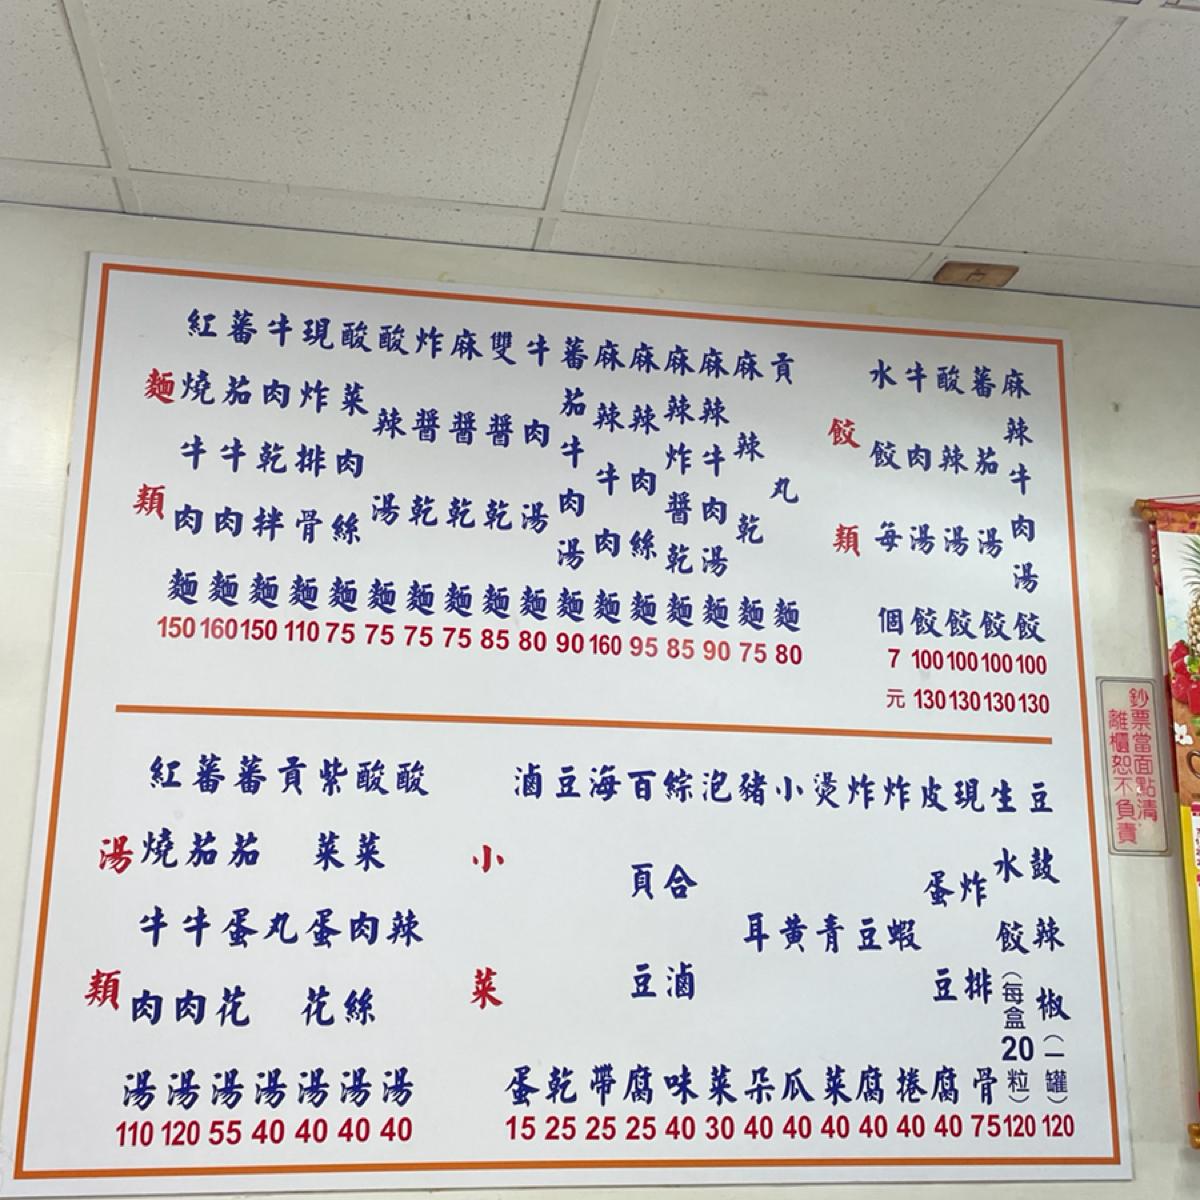 麵類
紅燒牛肉麵 150
蕃茄牛肉麵 160
牛肉乾拌麵 150
現炸排骨麵 110
酸菜肉絲麵 75
酸辣湯麵 75
炸醬乾麵 75
麻醬乾麵 75
雙醬乾麵 85
牛肉湯麵 80
蕃茄牛肉湯麵 90
麻辣牛肉麵 160
麻辣肉絲麵 95
麻辣炸醬乾麵 85
麻辣牛肉湯麵 90
麻辣乾麵 75
貢丸麵 80
餃類
水餃每個 7元
牛肉湯餃 100 130
酸辣湯餃 100 130
蕃茄湯餃 100 130
麻辣牛肉湯餃 100 130
湯類
紅燒牛肉湯 110
蕃茄牛肉湯 120
蕃茄蛋花湯 55
貢丸湯 40
紫菜蛋花湯 40
酸菜肉絲湯 40
酸辣湯 40
小菜
滷蛋 15
豆乾 25
海帶 25
百頁豆腐 25
綜合滷味 40
泡菜 30
豬耳朵 40
小黃瓜 40
燙青菜 40
炸豆腐 40
炸蝦捲 40
皮蛋豆腐 40
現炸排骨 75
生水餃(每盒20粒) 120
豆鼓辣椒(一罐) 120
鈔票當面點清
離櫃恕不負責